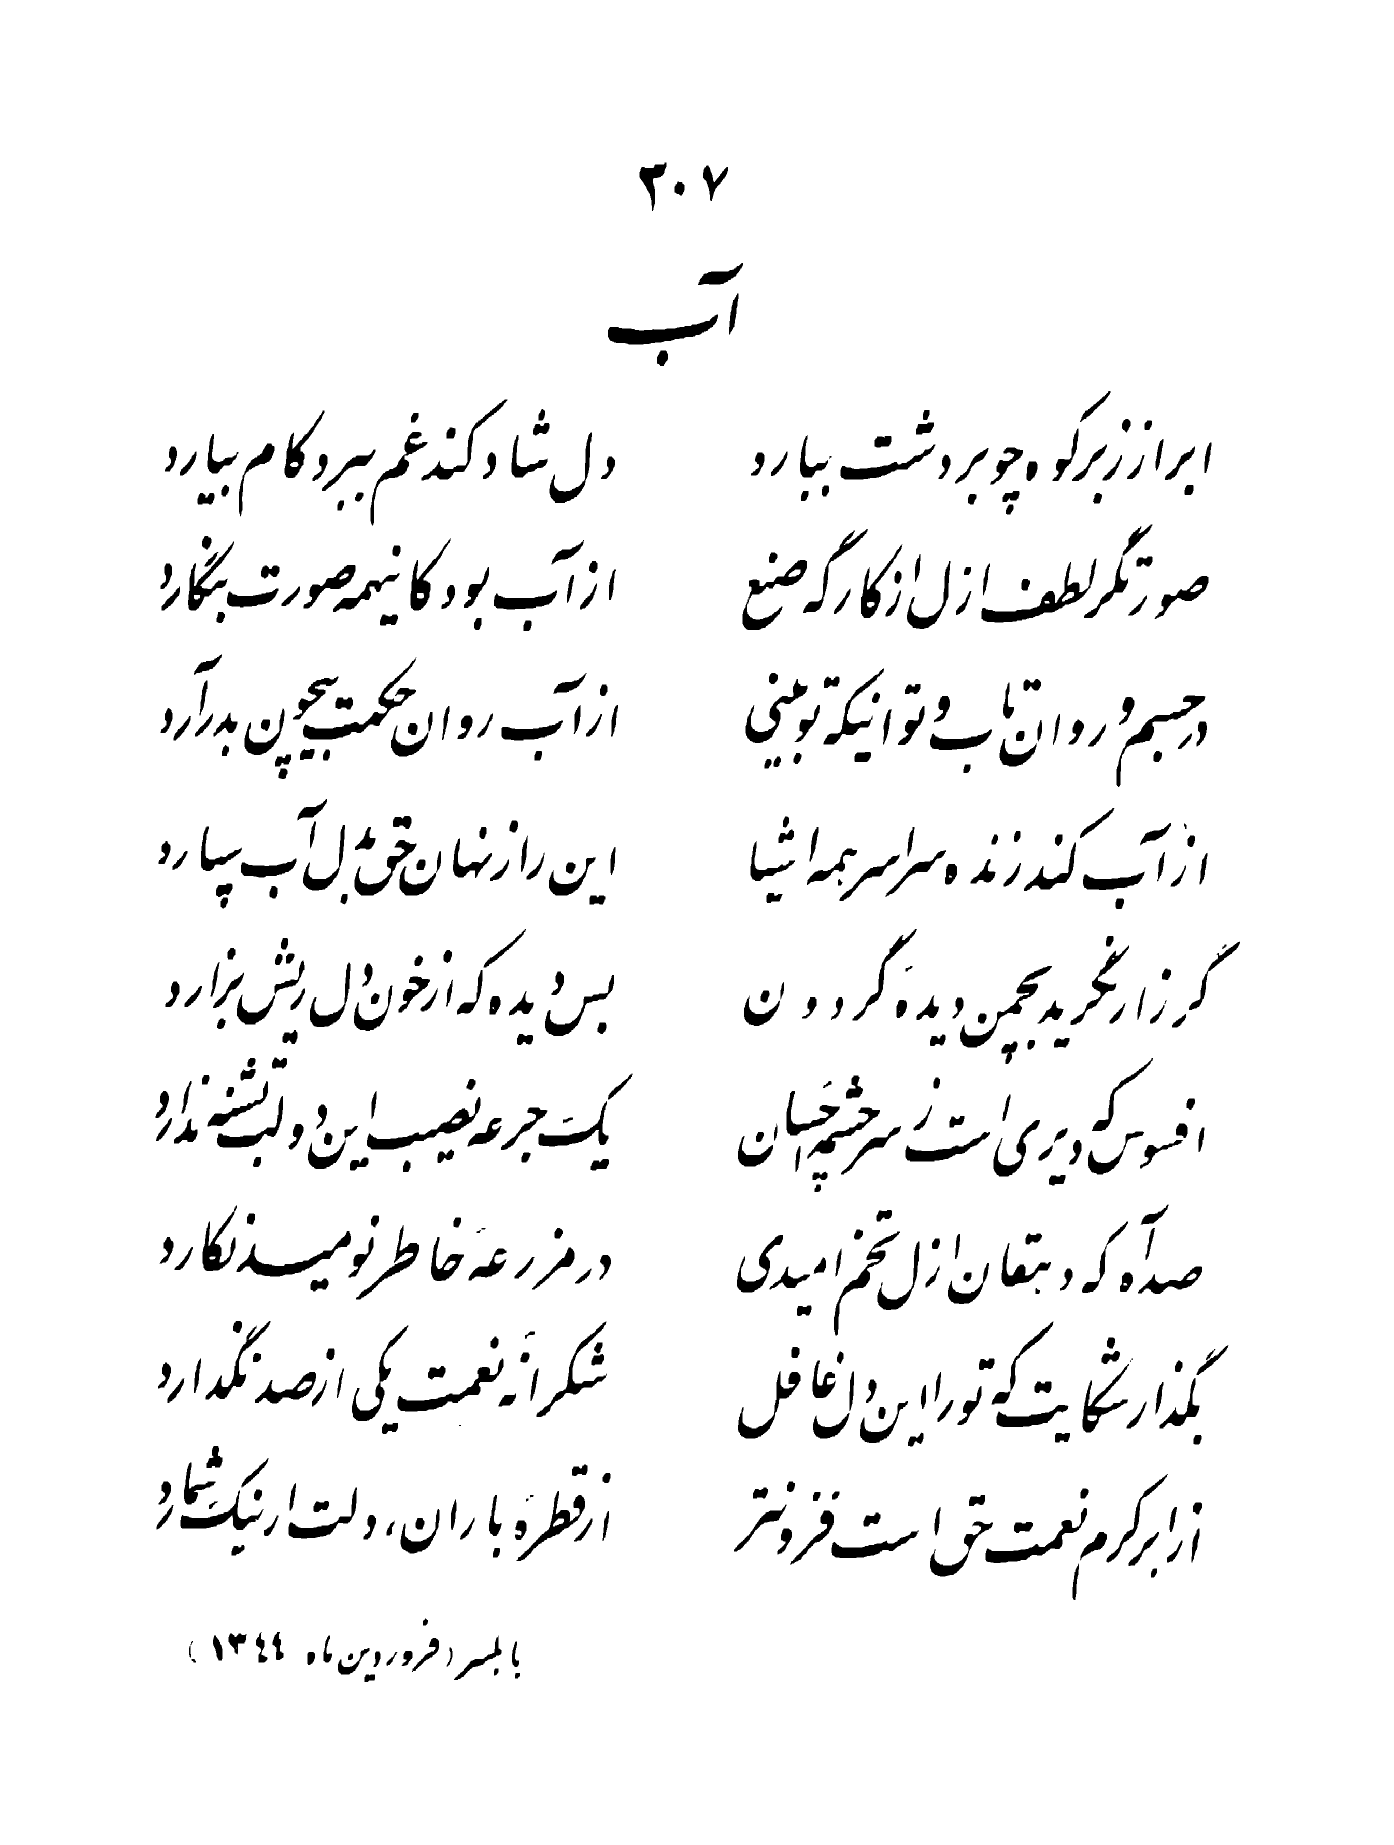 ۳۰۷
آب
ابر از زبر کوه چو بر دشت ببارد دل شاد کند غم ببرد کام بیارد
صورتگر لطف ازل از کارگه صنع از آب بود کاینهمه صورت بنگارد
در جسم و روان تاب و توانیکه تو بینی از آب روان حکمت بیچون بدر آرد
از آب کند زنده سراسر همه اشیا این راز نهان حق بدل آب سپارد
گر زار نگرید بچمن دیدهٔ گردون بس دیده که از خون دل ریش بزارد
افسوس که دیری است ز سرچشمه احسان یک جرعه نصیب این دو لب تشنه ندارد
صد آه که دهقان ازل تخم امیدی در مزرعهٔ خاطر نومید نکارد
بگذار شکایت که تو را این دل غافل شکرانهٔ نعمت یکی از صد نگذارد
از ابر کرم نعمت حق است فزونتر از قطرهٔ باران، دلت ار نیک شمارد
بابلسر (فروردین ماه ۱۳٤٤)